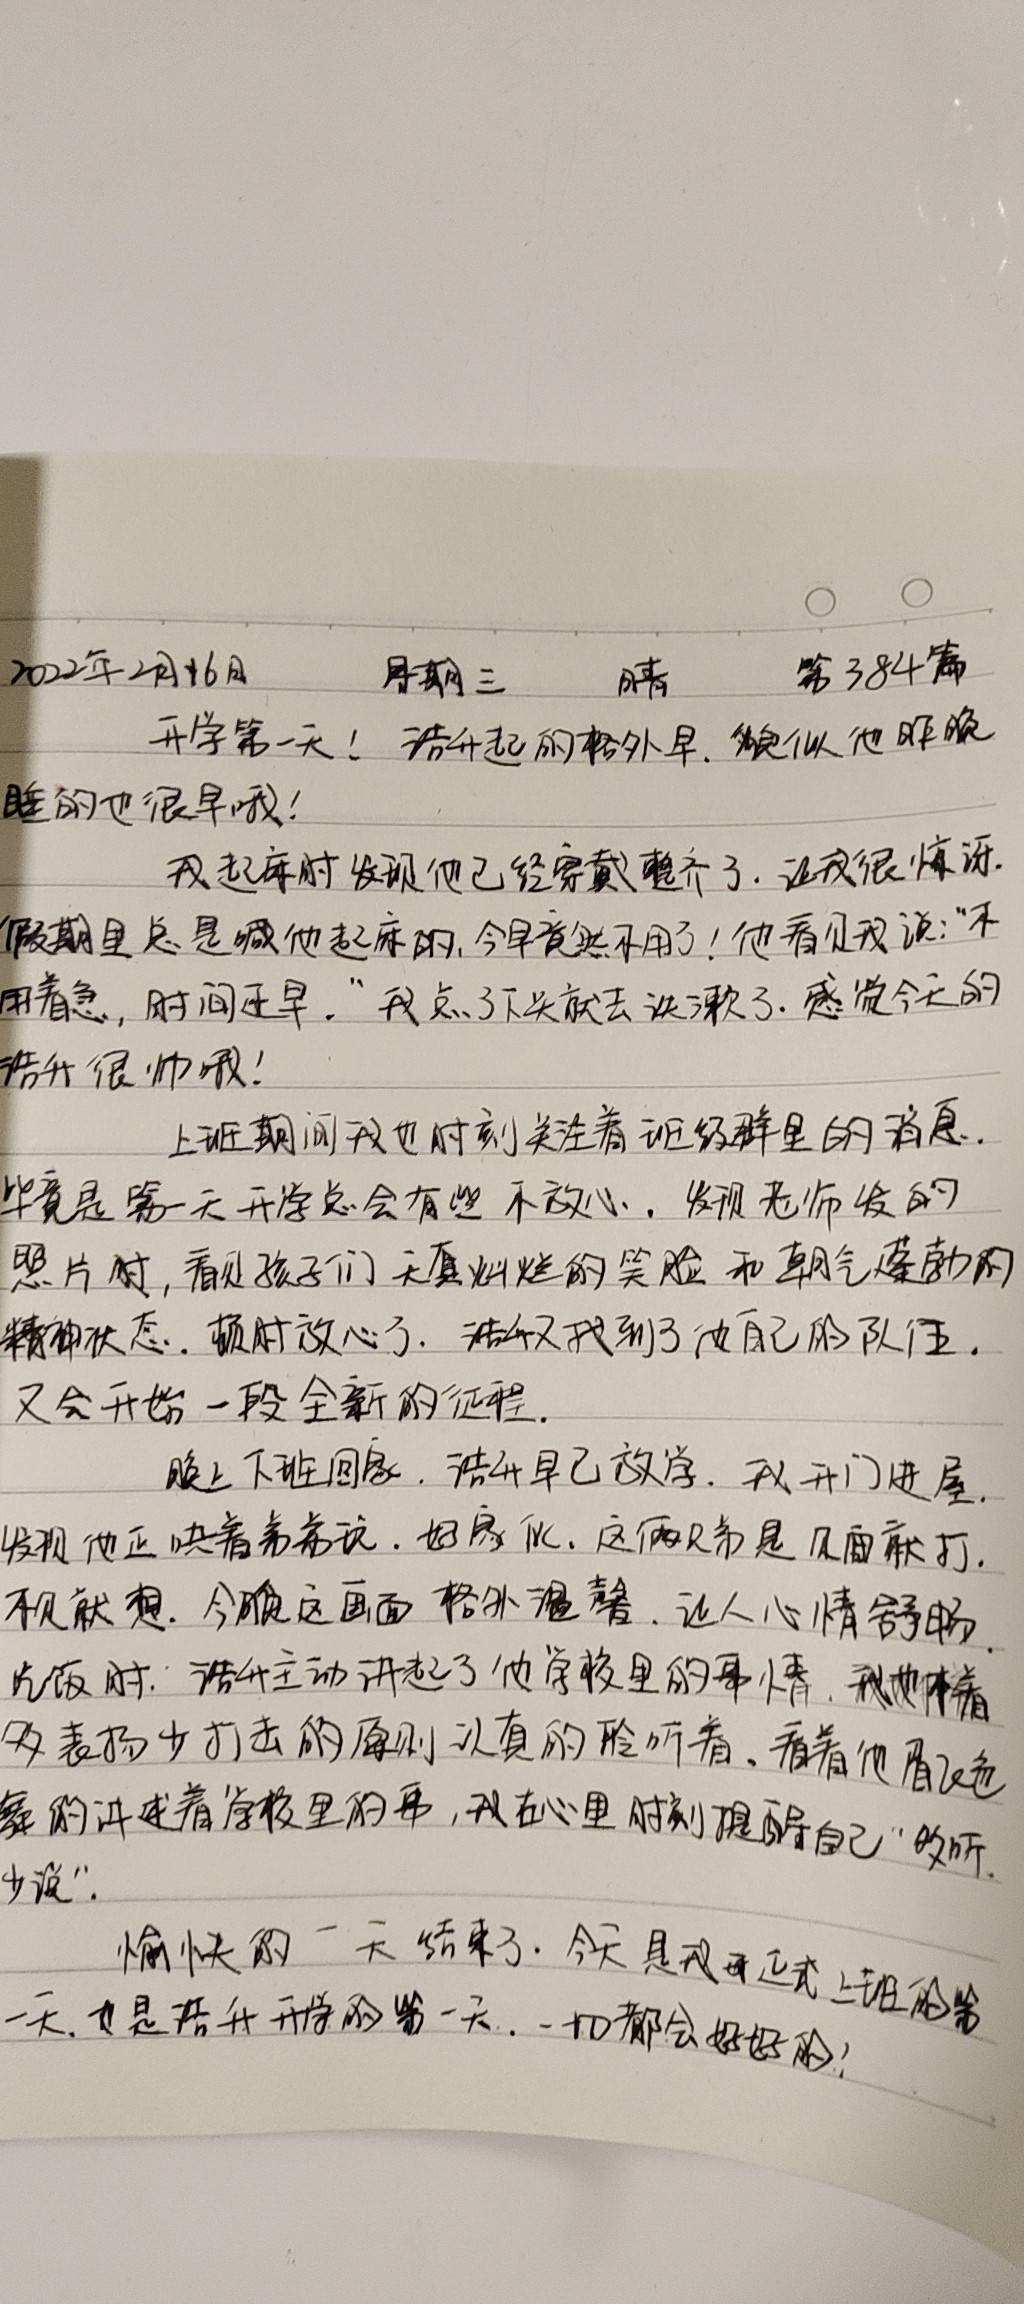 2022年2月16日 星期三 晴 第384篇
开学第一天！浩升起的格外早.貌似他昨晚
睡的也很早哦！
我起床时发现他已经穿戴整齐了.让我很惊讶.
假期里总是喊他起床的,今早竟然不用了！他看见我说:"不
用着急,时间还早."我点了下头就去洗漱了.感觉今天的
浩升很帅哦！
上班期间我也时刻关注着班级群里的消息.
毕竟是第一天开学总会有些不放心.发现老师发的
照片时,看见孩子们天真灿烂的笑脸和朝气蓬勃的
精神状态.顿时放心了.浩升又找到了他自己的队伍.
又会开始一段全新的征程.
晚上下班回家.浩升早已放学.我开门进屋.
发现他正哄着弟弟玩.好家伙.这俩兄弟是见面就打.
不见就想.今晚这画面格外温馨.让人心情舒畅.
吃饭时.浩升主动讲起了他学校里的事情.我也本着
多表扬少打击的原则认真的聆听着.看着他眉飞色
舞的讲述着学校里的事,我在心里时刻提醒自己"多听.
少说".
愉快的一天结束了.今天是我正式上班的第
一天.也是浩升开学的第一天.一切都会好好的！